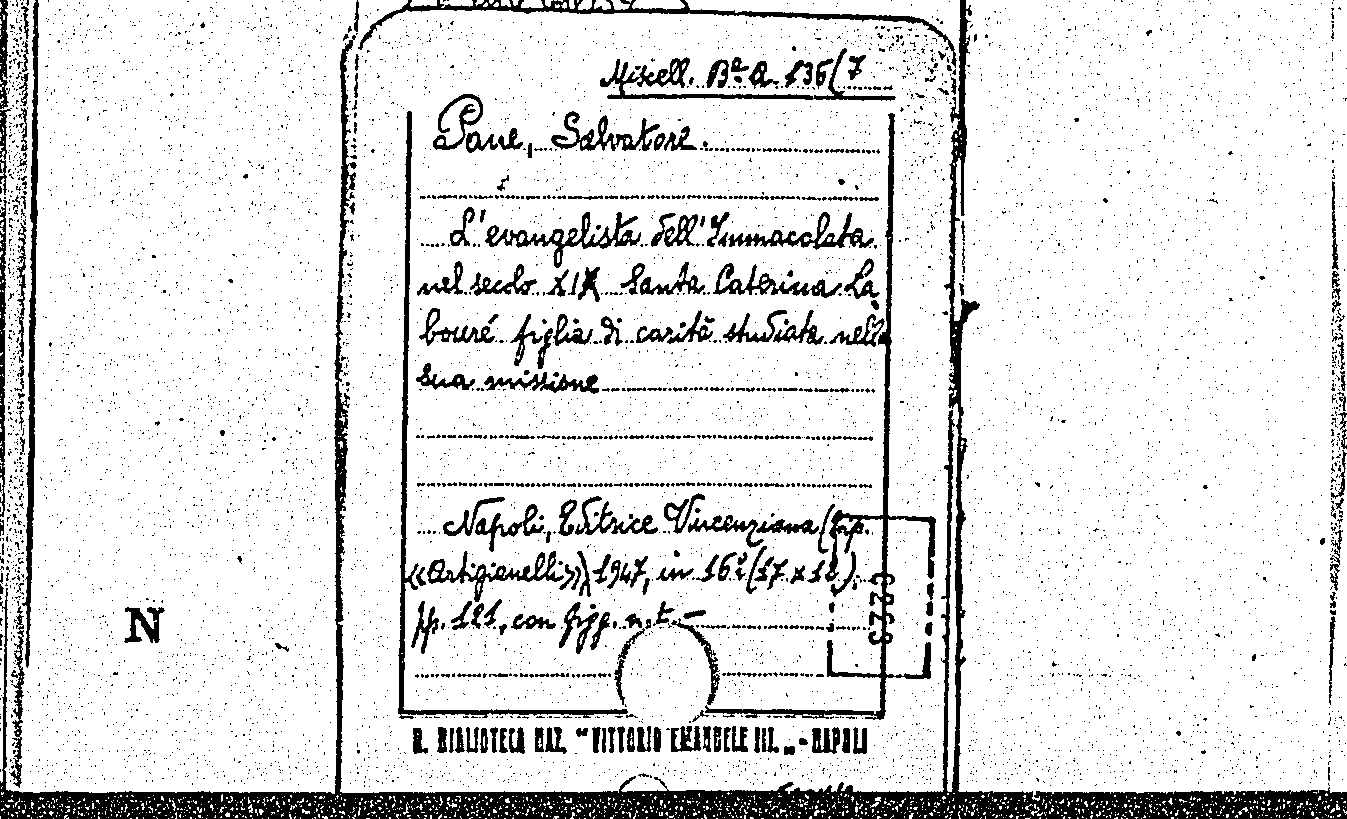 Miscell. Bª A 136(7
Pane, Salvatore.
L'evangelista dell'Immacolata
nel secolo XIX Santa Caterina La
bouré figlia di carità studiata nella
sua missione
Napoli, Editrice Vincenziana (tip.
«Artigianelli») 1947, in 16º (17 x 12).
pp. 121, con figg. n. t. —
N
R. BIBLIOTECA NAZ. "VITTORIO EMANUELE III." - NAPOLI